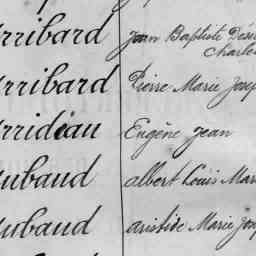 Arribard Jean Baptiste Dési
Charle
Arribard Pierre Marie Josep
Arridiau Eugène Jean
Aubaud albert Louis Mari
Aubaud aristide Marie Jos